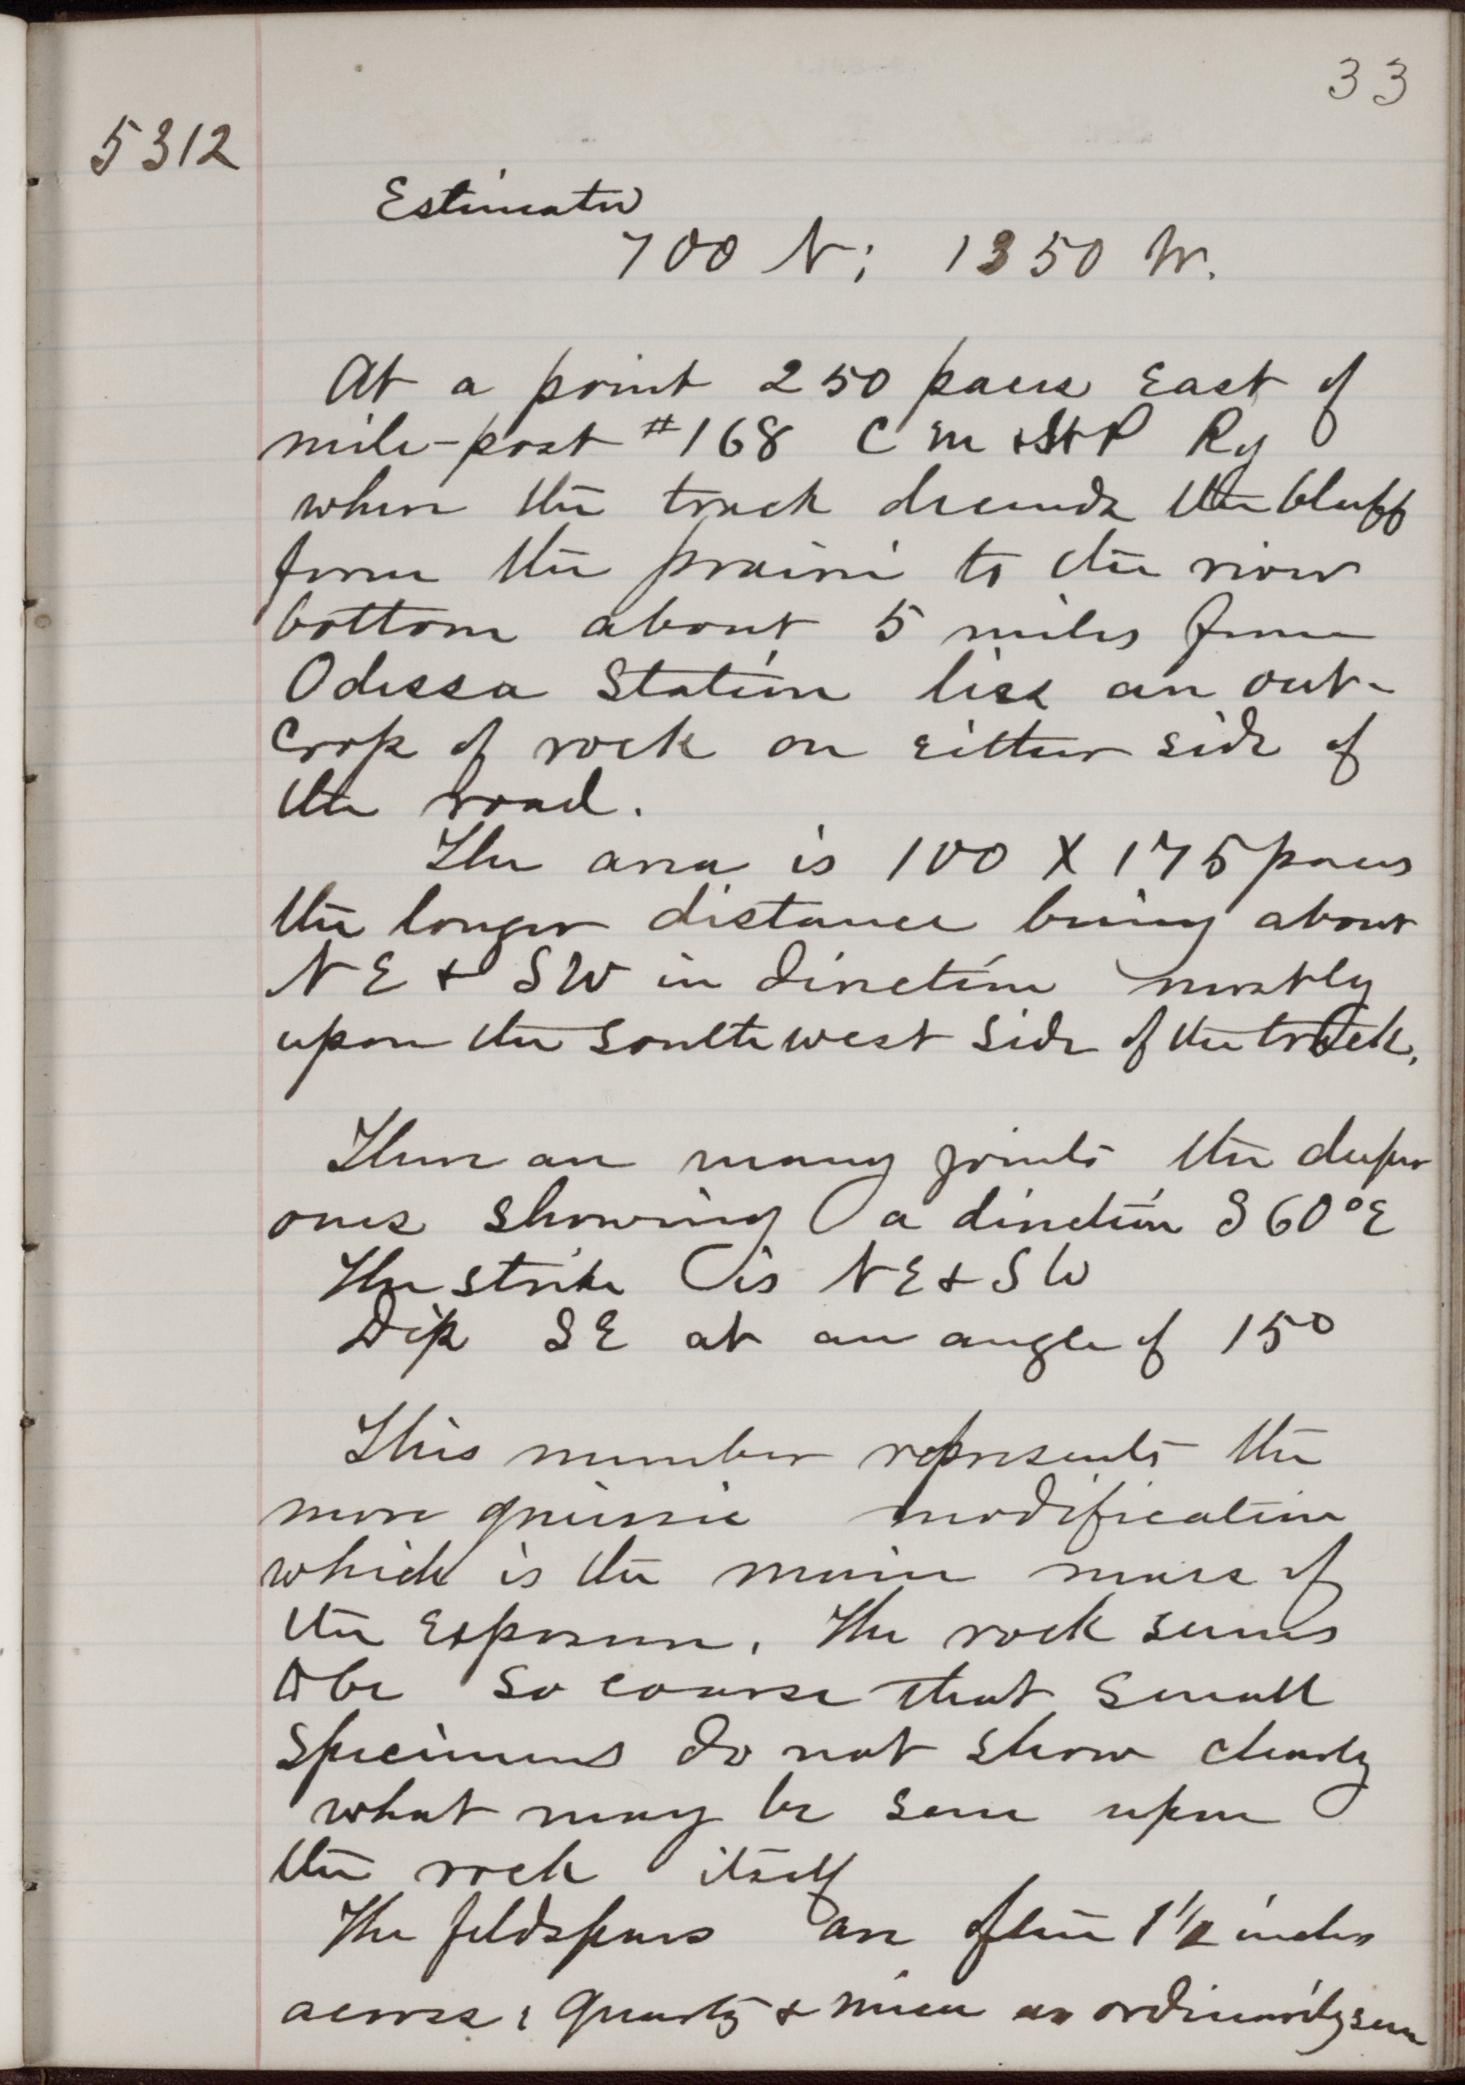 33
5312
Estimated
700 N; 1350 W.
At a point 250 paces East of
mile-post #168 C M & St P Ry
where the track decends the bluff
from the prairie to the river
bottom about 5 miles from
Odessa Station lies an out-
crop of rock on either side of
the road.
The area is 100 X 175 paces
the longer distance being about
NE & SW in direction mostly
upon the southwest side of the track.
There are many joints the deeper
ones showing a direction S 60° E
The strike is NE & SW
Dip SE at an angle of 15°
This number represents the
more gneissic modification
which is the main mass of
the exposure. The rock seems
to be so coarse that small
specimens do not show clearly
what may be seen upon
the rock itself
The feldspars are often 1 1/2 inches
across; quartz & mica as ordinarily seen